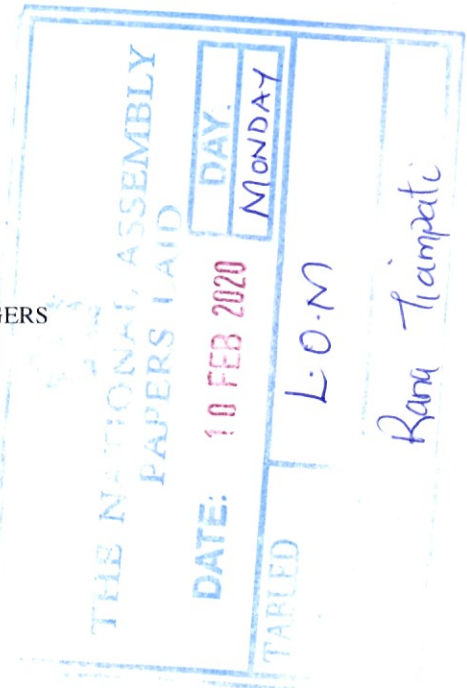 GERS
THE NATIONAL ASSEMBLY
PAPERS LAID
DATE: 10 FEB 2020
DAY.
MONDAY
TABLED
L.O.M
Rana Tiampati